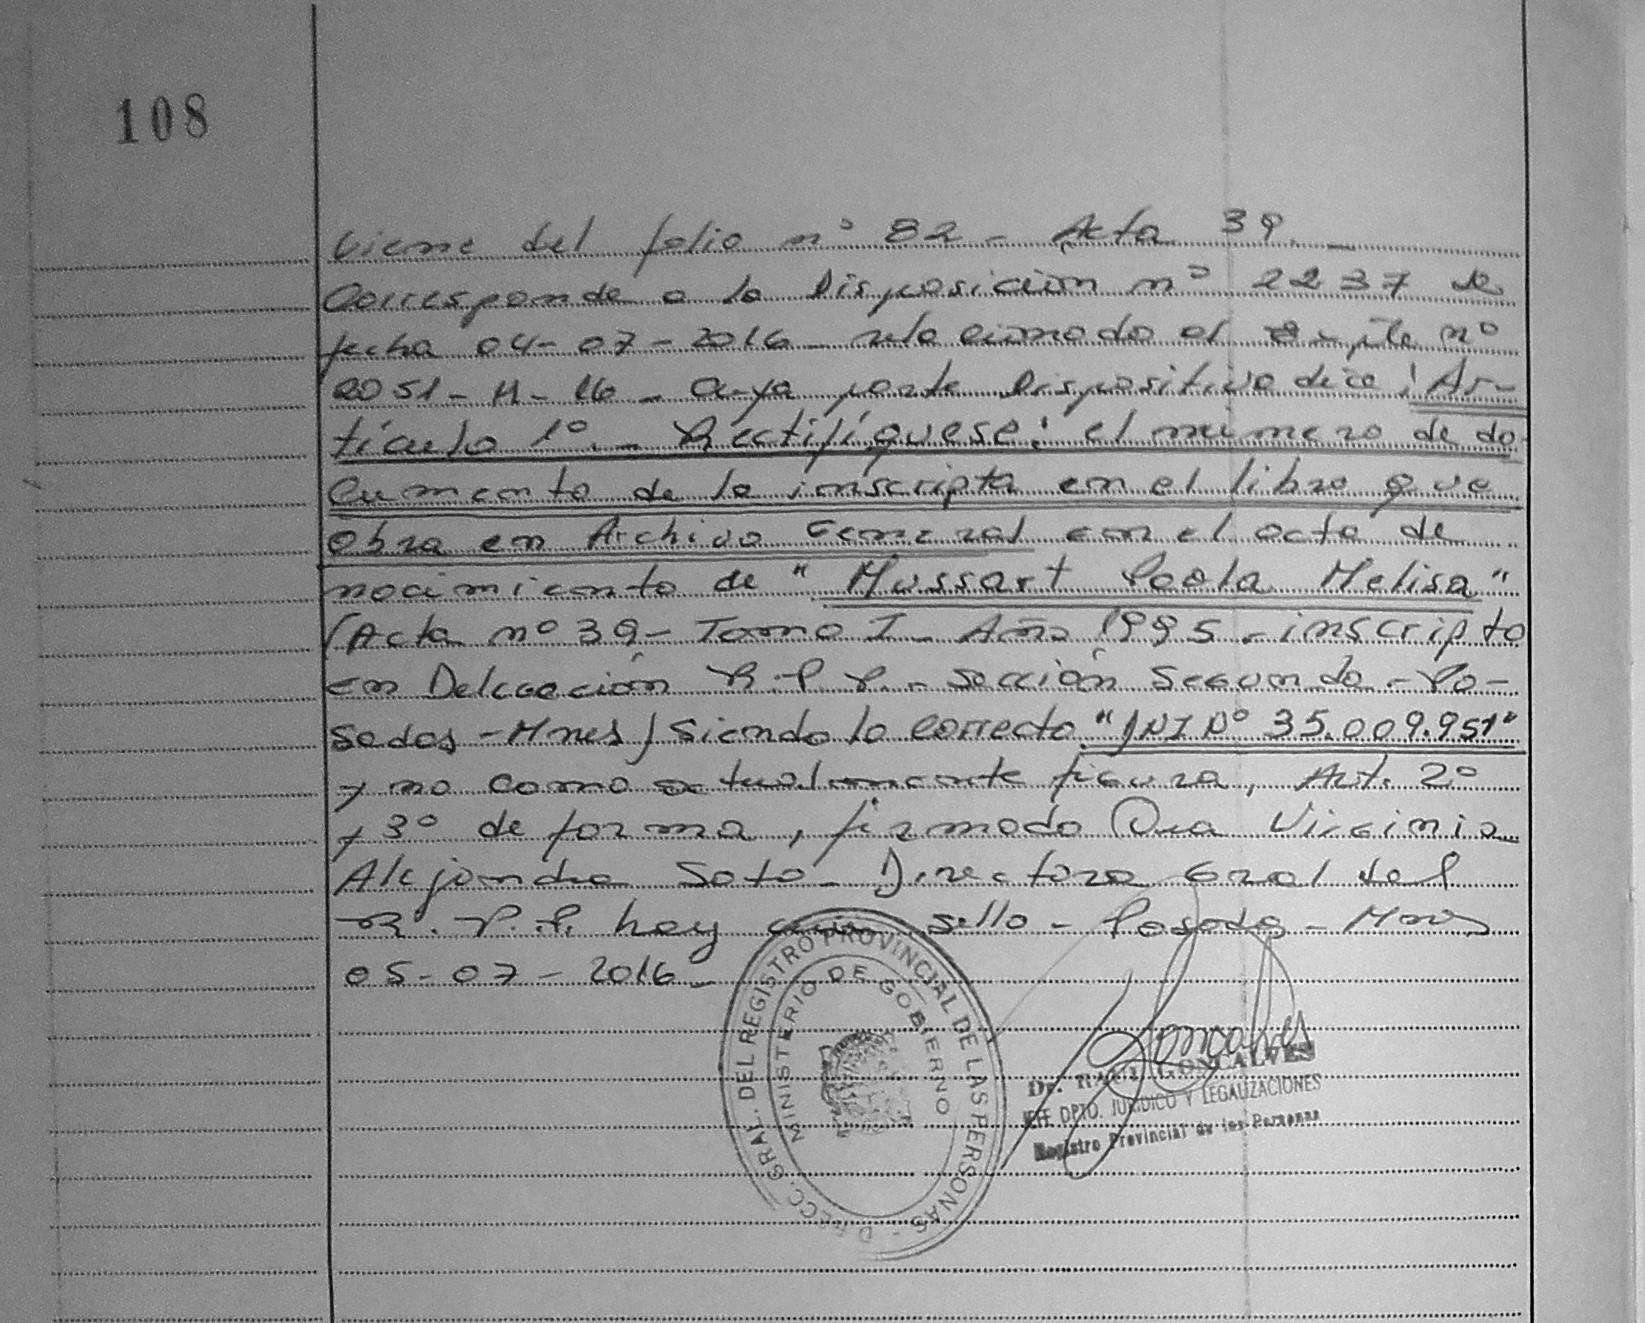 108
Viene del folio nº 82 - Acta 39. -
Corresponde a la Disposición nº 2237 de
fecha 04-07-2016 - relacionado al Expte nº
2051-M-16 - cuya parte Dispositiva dice: Ar-
tículo 1º. - Rectifíquese: el numero de do
cumento de la inscripta en el libro que
obra en Archivo General en el acta de
nacimiento de "Mussart Paola Melisa"
(Acta nº 39 - Tomo I - Año 1995 - inscripto
en Delegación R.P.P. - sección Segunda - Po-
sadas - Mnes) siendo lo correcto "DNI Nº 35.009.951"
y no como actualmente figura, Art. 2º
y 3º de forma, firmado Dra Virginia
Alejandra Soto - Directora Gral del
R.P.P. hay un sello - Posadas - Mnes
05-07-2016 -
DIRECC. GRAL. DEL REGISTRO PROVINCIAL DE LAS PERSONAS
MINISTERIO DE GOBIERNO
Goncalves
Dr. RAUL GONCALVES
JEFE DPTO. JURIDICO Y LEGALIZACIONES
Registro Provincial de las Personas